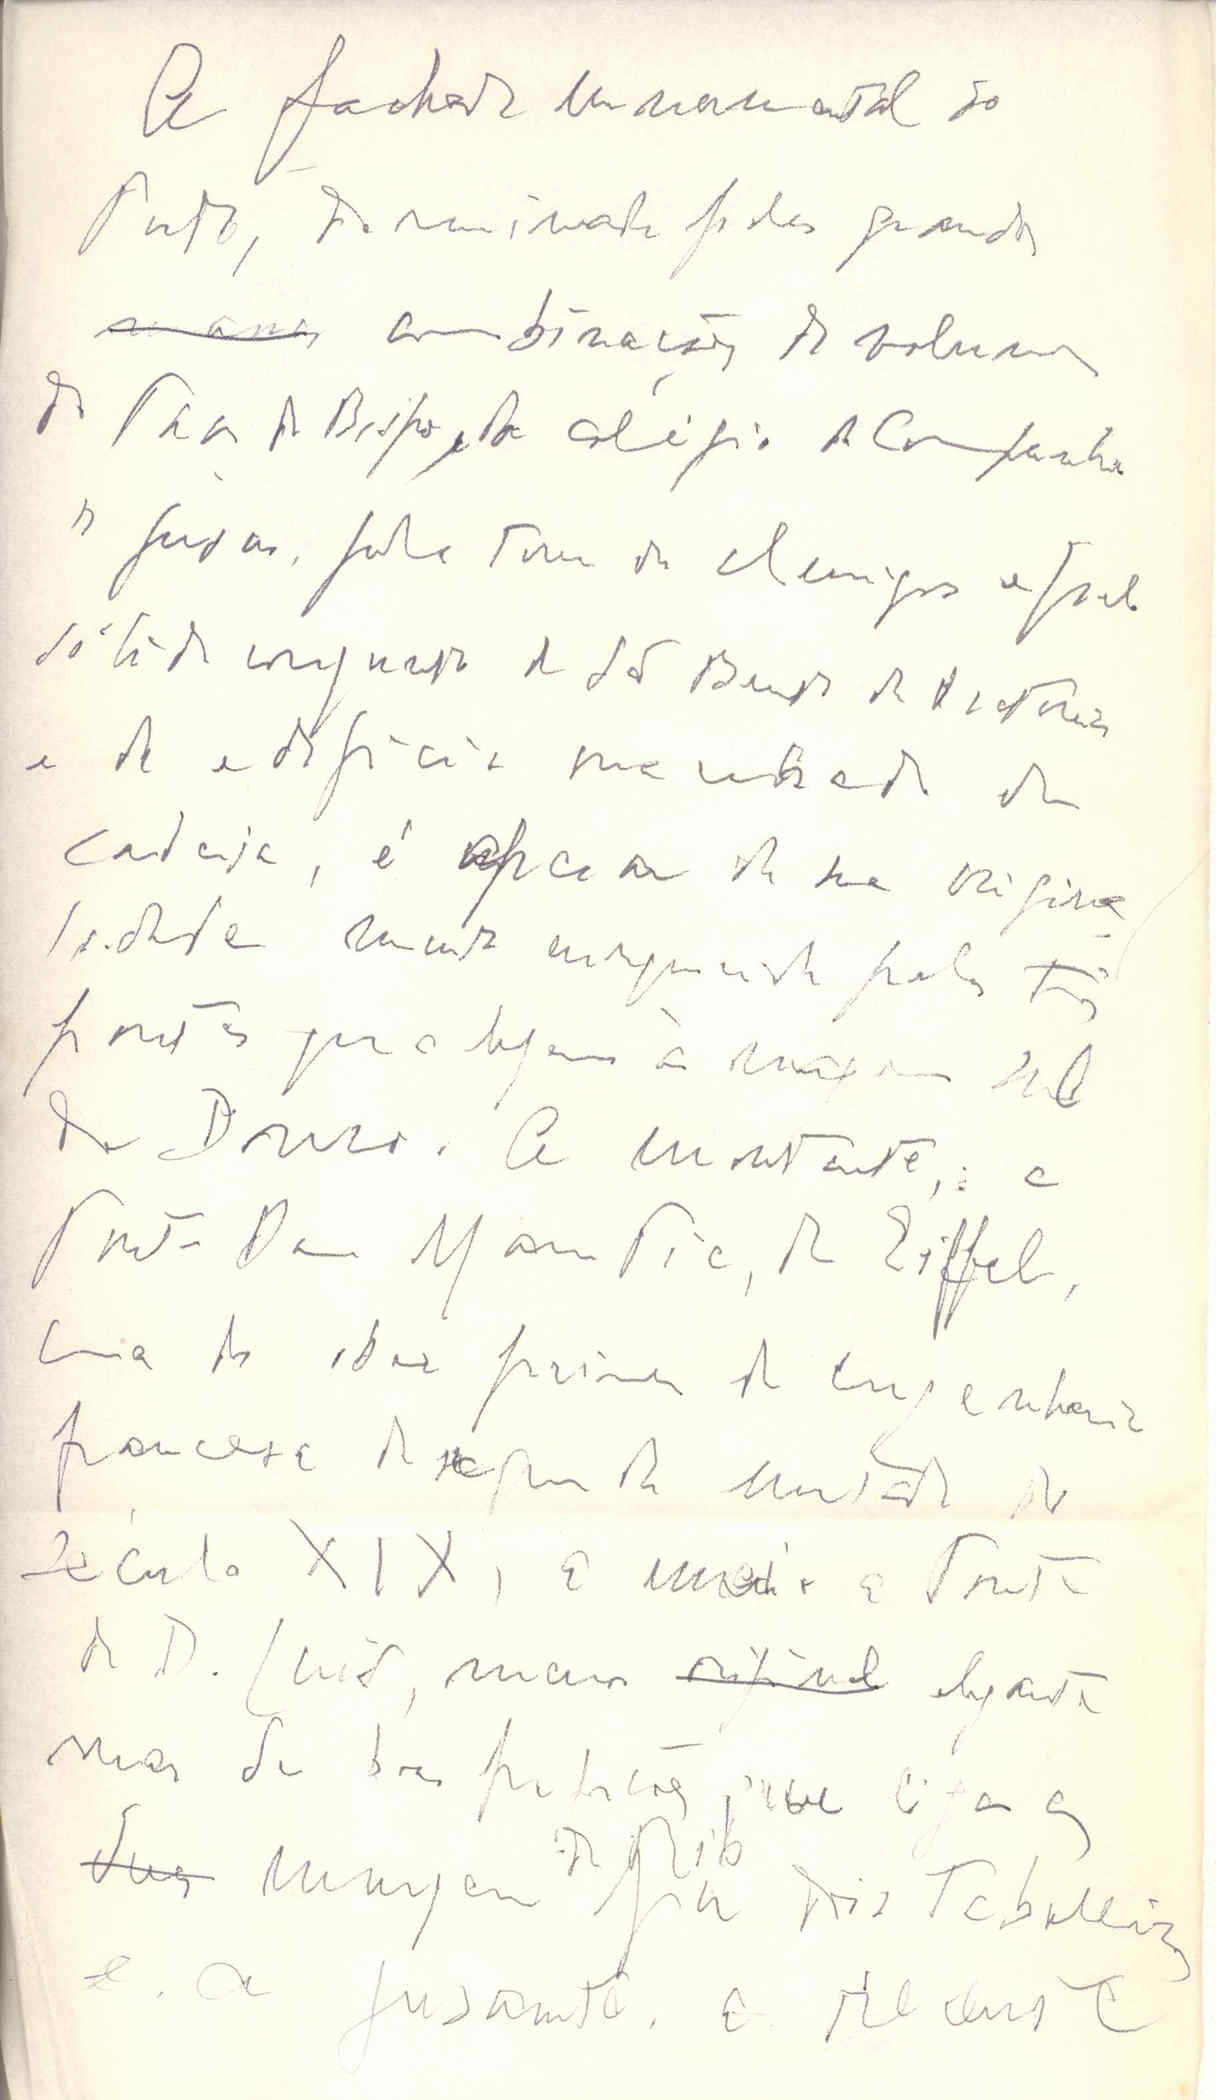 A fachada monumental do
Porto, dominada pelas grandes
massas combinações de volumes
do Paço do Bispo, do colégio da Companhia
de Jesus, pela Torre dos Clerigos e pelo
sólido conjunto de São Bento da Victoria
e do edificio da
cadeia, é apesar da sua origina
lidade muito enriquecida pelas três
pontes que a ligam à margem sul
do Douro. A montante, a
Ponte Dona Maria Pia, de Eiffel,
uma das obras primas da engenharia
francesa da segunda metade do
século XIX, a meio a Ponte
de D. Luís, menos original elegante
mas de boas proporções, que liga as
duas margens do rio por dois taboleiros
e, a jusante, a recente